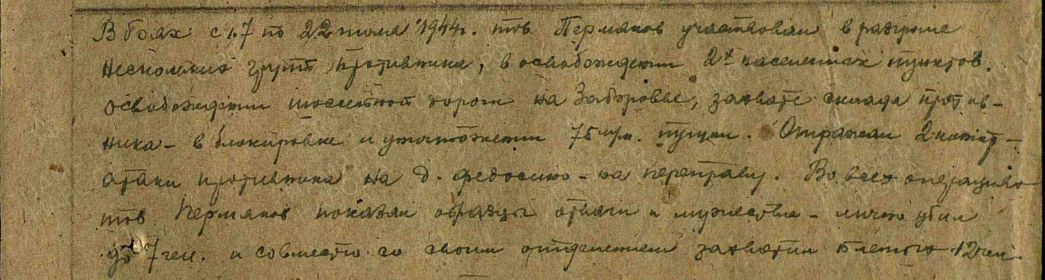 В боях с 17 по 22 июля 1944г. тов Пермаков участвовал в разгроме
нескольких групп противника, в освобождении 2х населенных пунктов.
освобождении шоссейной дороги на Заборовье, захвате склада против-
ника - в блокировке и уничтожении 75 м/м. пушки. Отражал 2 контр-
атаки противника на д. Федосино - на переправу. Во всех операциях
тов Пермаков показал образцы отваги и мужества - лично убил
до 7 чел. и совместно со своим отделением захватил пленного 12 чел.